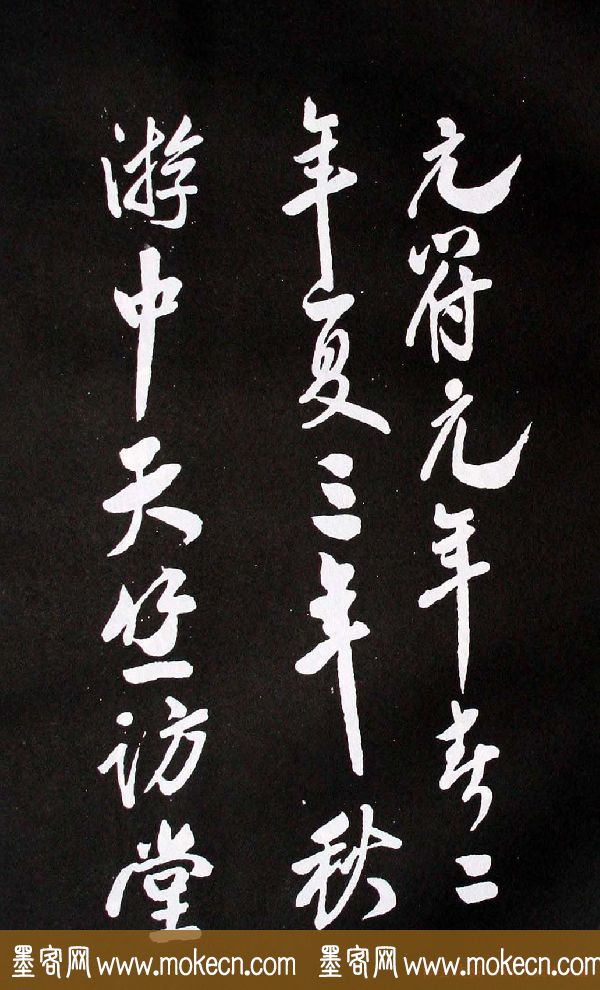 元符元年春二
年夏三年秋
游中天竺访堂
墨客网 www.mokecn.com 墨客网 www.mokecn.com